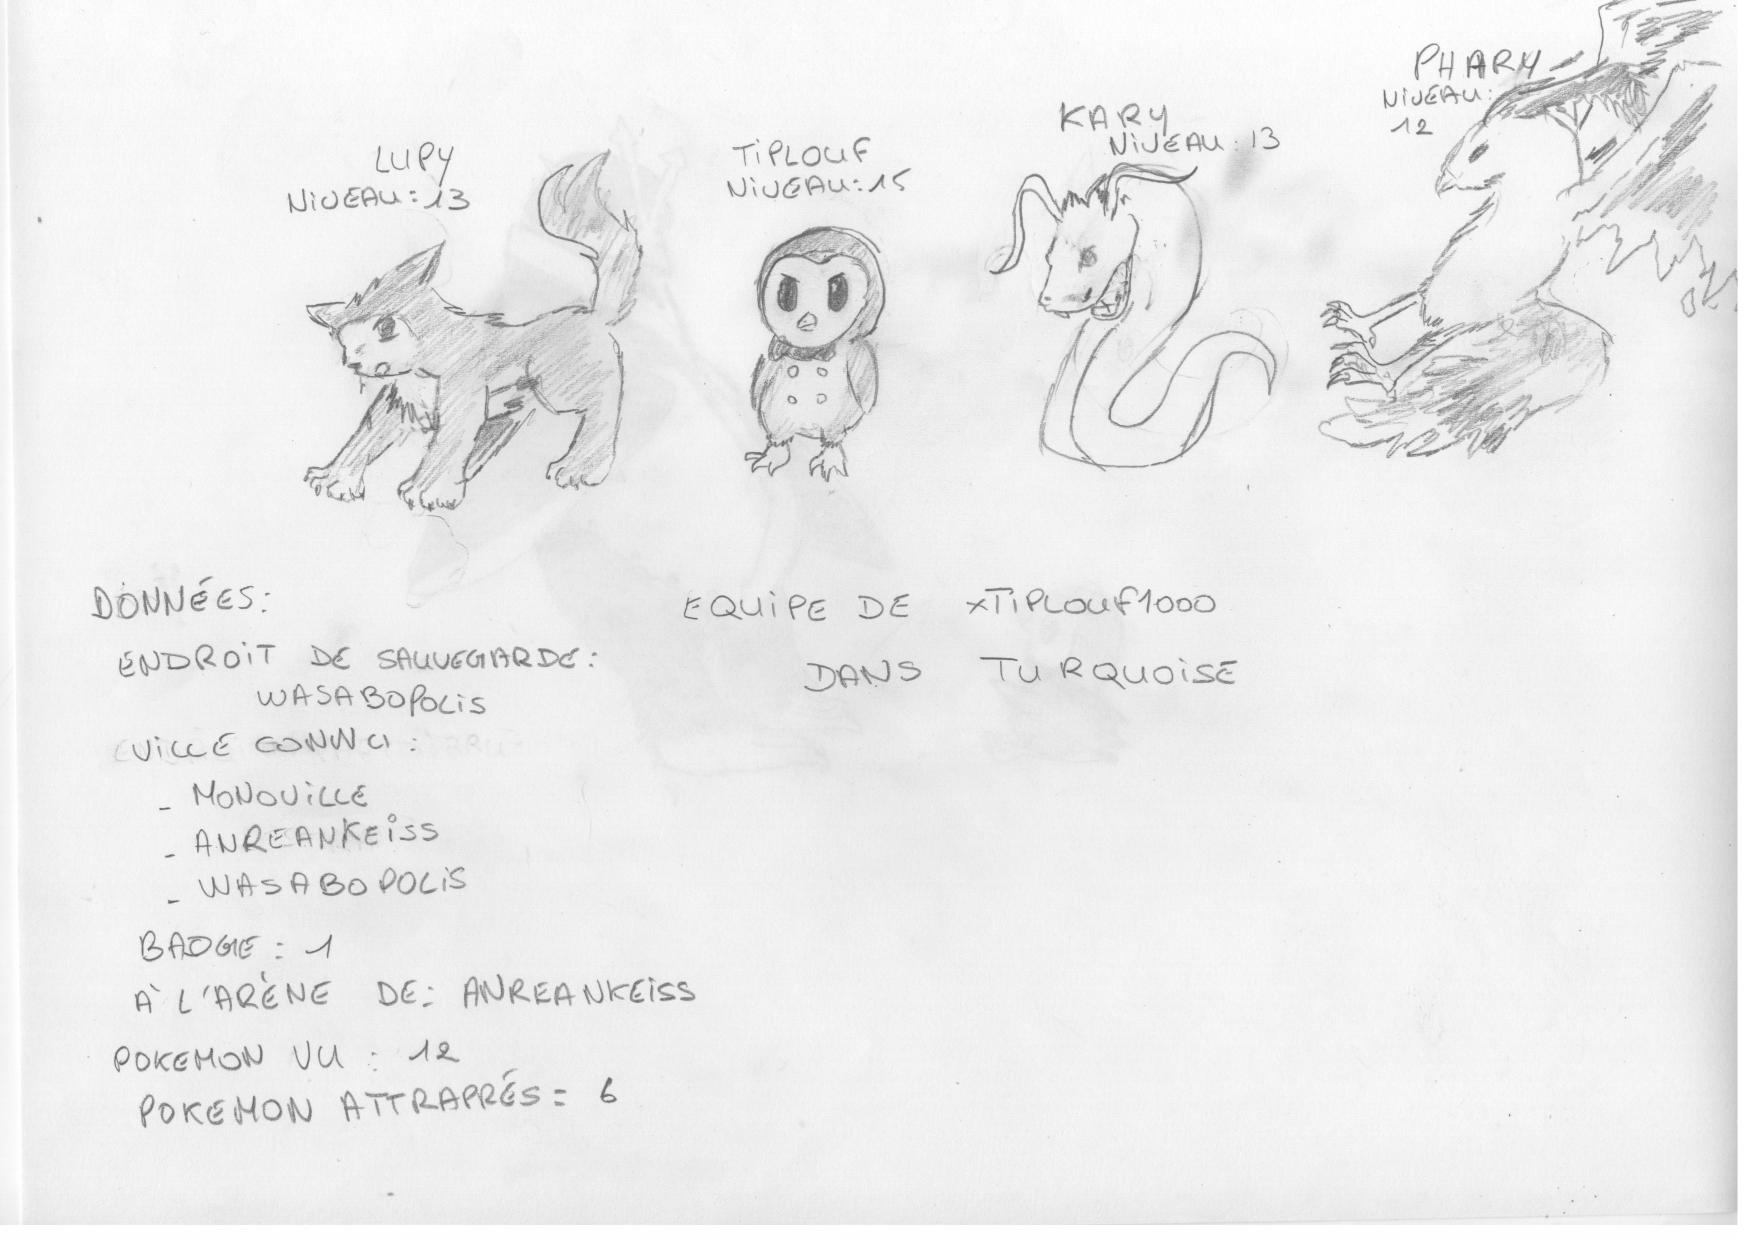 LUPY
NiVEAU : 13
TiPLOUF
NiVEAU : 15
KARY
NiVEAU : 13
PHARY
NiVEAU :
12
DONNÉES :
ENDROiT DE SAUVEGARDE :
WASABOPOLiS
ViLLE CONNU :
- MONOViLLE
- ANREANKEiSS
- WASABOPOLiS
BADGE : 1
À L'ARÈNE DE : ANREANKEiSS
POKEMON VU : 12
POKEMON ATTRAPRÉS = 6
EQUiPE DE xTiPLOUF1000
DANS TURQUOiSE